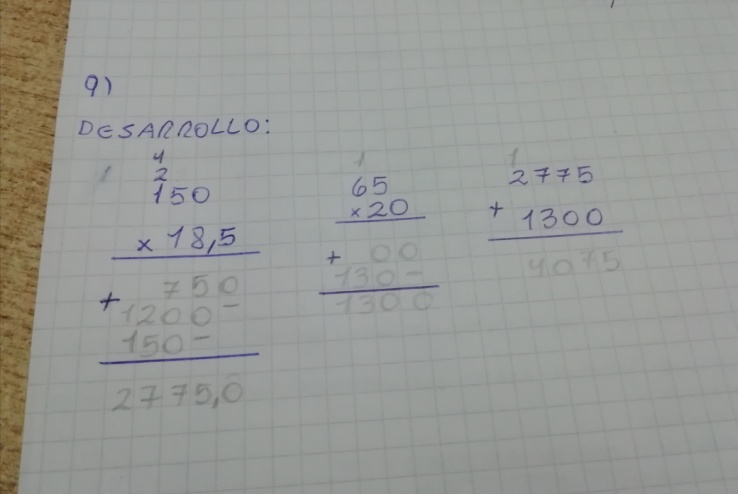 9)
DESARROLLO:
1 4
2
150
x 18,5
+ 750
1200-
150-
2775,0
1
65
x20
+ 00
130-
1300
1
2775
+ 1300
4075